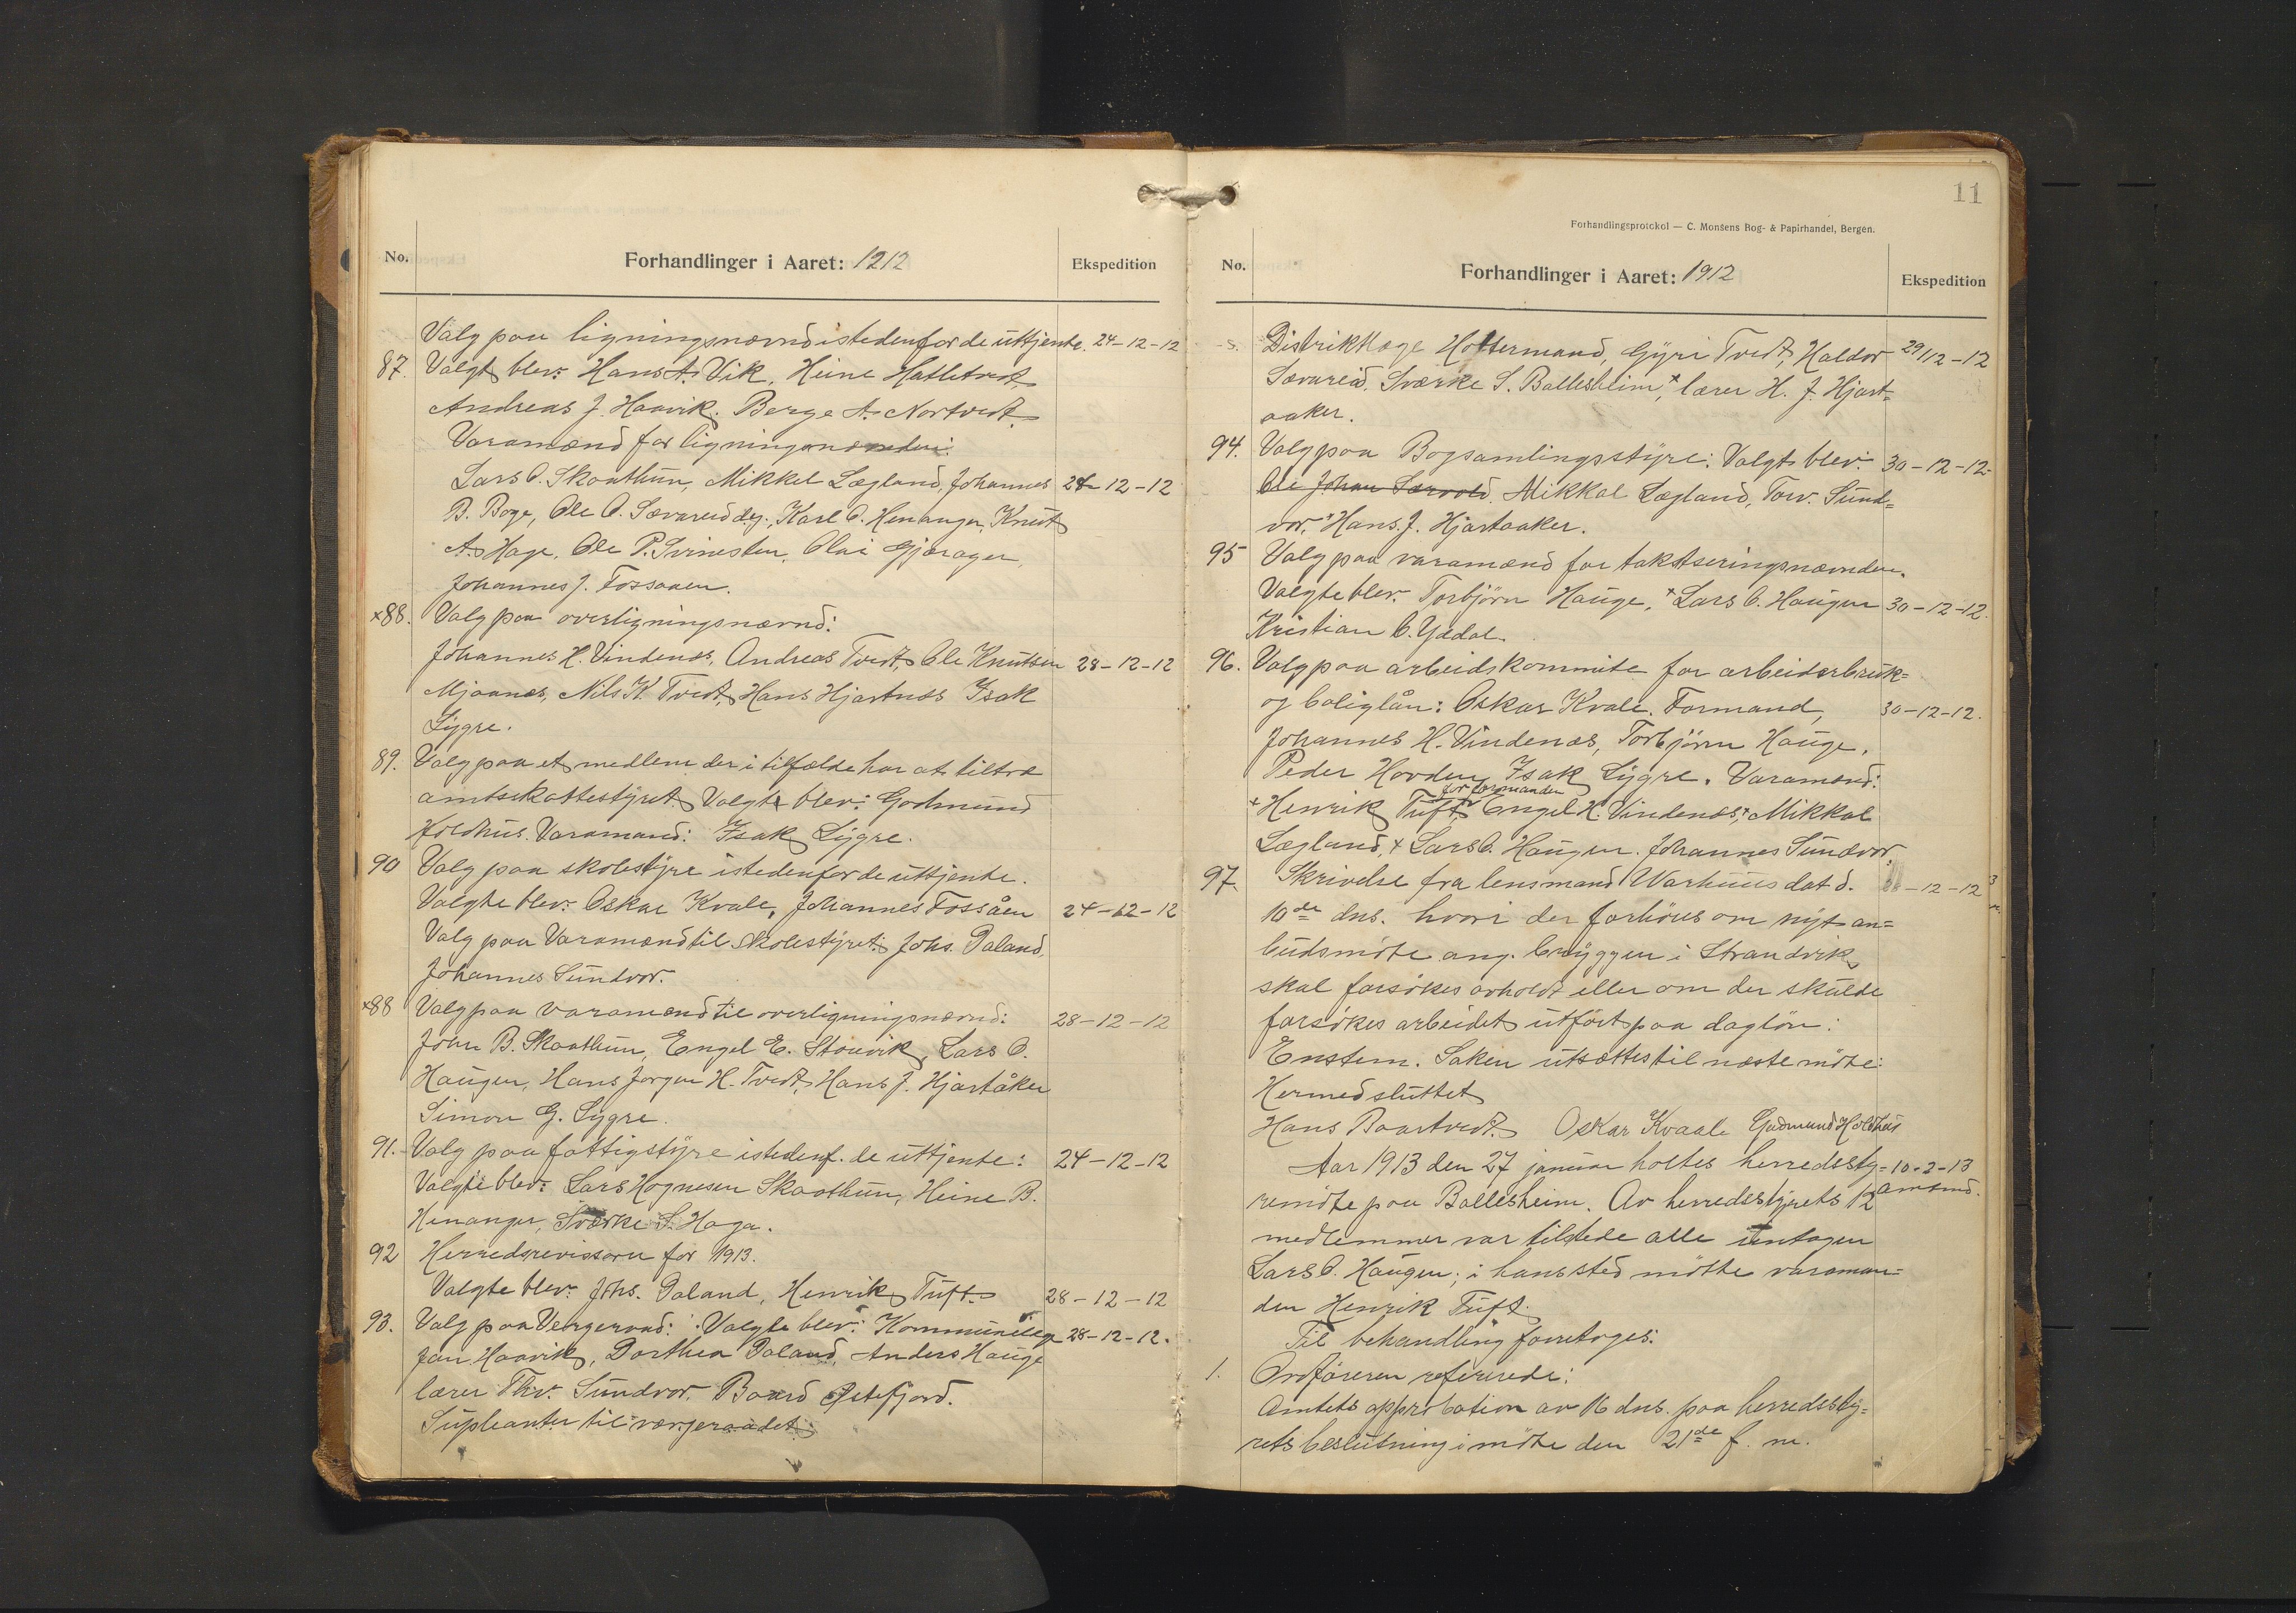 No.
Forhandlinger i Aaret: 1212
Ekspedition
Valg paa ligningsnævnd istedenfor de uttjente. 24-12-12
87. Valgt blev: Hans A. Vik, Heine Hatletvedt,
Andreas J. Haavik. Berge A. Nortvedt.
Varamænd for ligningsnævnden:
Lars O. Skaathun, Mikkel Lægland, Johannes 28-12-12
B. Boge, Ole O. Sævareid d.y., Karl O. Henanger, Knut
A. Hage, Ole P. Ivinesten, Olai Gjerager,
Johannes J. Fossaaen.
x88. Valg paa overligningsnævnd:
Johannes H. Vindenes, Andreas Tvedt, Ole Knutsen 28-12-12
Mjaanes, Nils K. Tvedt, Hans Hjartnes Isak
Lygre.
89. Valg paa et medlem der i tilfælde har at tiltræ
amtsskattestyret. Valgt blev: Godmund
Holdhus. Varamand: Isak Lygre.
90 Valg paa skolestyre istedenfor de uttjente.
Valgte blev: Oskar Kvale, Johannes Fossåen 24-12-12
Valg paa Varamænd til skolestyret: Johs. Daland,
Johannes Sundvor.
x88 Valg paa varamænd til overligningsnævnd: 28-12-12
John B. Skaathun, Engel E. Stouvik, Lars O.
Haugen, Hans Jørgen H. Tvedt, Hans J. Hjartåker
Simon G. Lygre.
91. Valg paa fattigstyre istedenf. de uttjente: 24-12-12
Valgte blev: Lars Hognesen Skaathun, Heine B.
Henanger, Sværke S. Haga.
92 Herredsrevisorer for 1913.
Valgte blev: Johs. Daland, Henrik Tuft. 28-12-12
93. Valg paa Vergeraad: Valgte blev: Kommunelæge 28-12-12.
Jan Haavik, Dorthea Daland, Anders Hauge
lærer Thv. Sundvor. Baard Østefjord.
Supleanter til vergeraadet:
11
Forhandlingsprotokol — C. Monsens Bog- & Papirhandel, Bergen.
No.
Forhandlinger i Aaret: 1912
Ekspedition
Distriktlæge Holtermand, Gyri Tvedt, Haldor 29/12-12
Sævareid. Sværke S. Ballesheim, x lærer H. J. Hjart=
aaker.
94. Valg paa Bogsamlingsstyre: Valgt blev: 30-12-12.
Ole Johan Særvold. Mikkal Lægland, Torv. Sund=
vor, x Hans J. Hjartaaker.
95 Valg paa varamænd for takstseringsnævnden.
Valgte blev: Torbjørn Hauge, x Lars O. Haugen 30-12-12.
Kristian O. Yddal.
96. Valg paa arbeidskommite for arbeiderbruk=
og boliglån: Oskar Kvale. Formand, 30-12-12.
Johannes H. Vindenes, Torbjørn Hauge,
Peder Hovden, Isak Lygre. Varamænd:
for formanden
x Henrik Tuft, Engel H. Vindenes, x Mikkal
Lægland, x Lars O. Haugen. Johannes Sundvor.
97. Skrivelse fra lensmand Warhuus dat d. -12-12
10de dns. hvori der forhøres om nyt an=
budsmøte ang. bryggen i Strandvik
skal forsøkes avholdt eller om der skulde
forsøkes arbeidet utført paa dagløn:
Enstem. Saken utsættes til næste møte:
Hermed sluttet
Hans Baartvedt. Oskar Kvaale Gudmund Holdhus
Aar 1913 den 27 januar holtes herredssty= 10-2-13
remøte paa Ballesheim. Av herredsstyrets 12 amtmd.
medlemmer var tilstede alle untagen
Lars O. Haugen; i hans sted møtte varaman=
den Henrik Tuft.
Til behandling foretoges:
1. Ordføreren refererede:
Amtets approbation av 16 dns. paa herredssty=
rets beslutning i møte den 21de f. m.